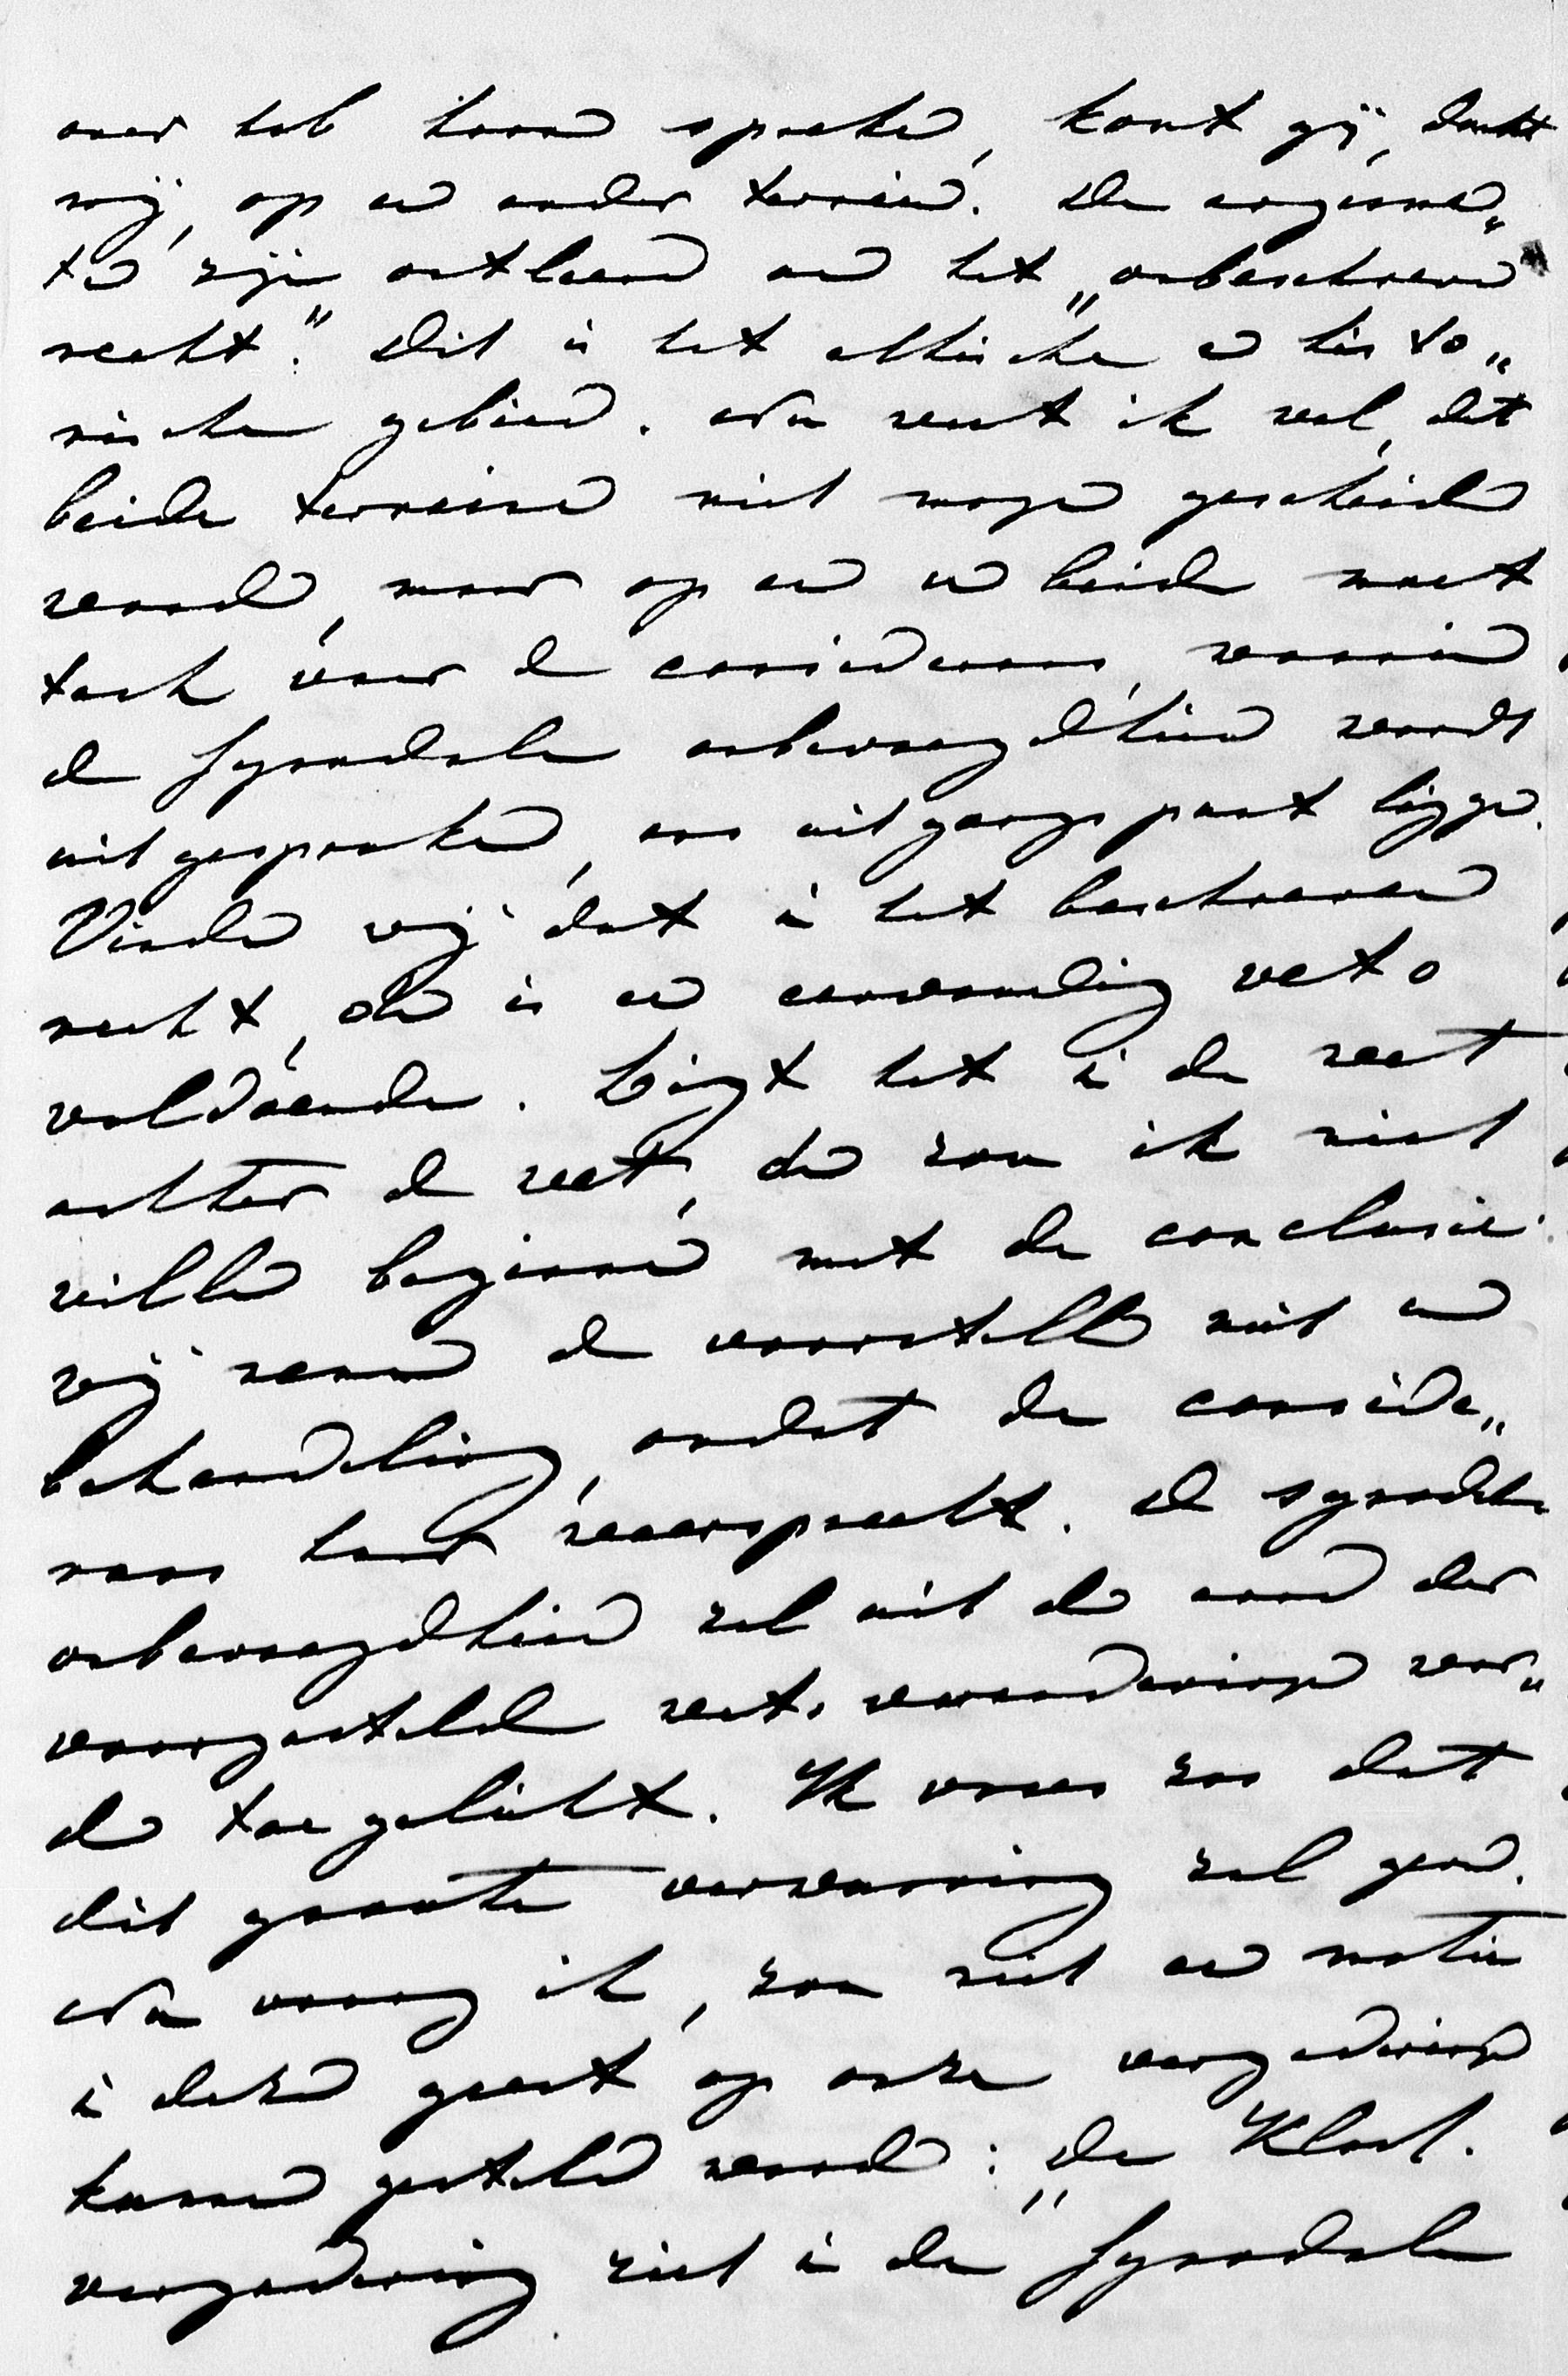 over heb hooren spreken, komt gij, dunkt
mij, op een ander terrein. De argumen„
ten zijn ontleend aan het „onbeschreven
recht.” Dit is het ethische en histo„
rische gebied. Nu weet ik wel, dat
beide terreinen niet mogen gescheiden
worden, maar op een van beide moet
toch voor de consideraans, waarin
de Synodale onbevoegdheid wordt
uitgesproken, ons uitgangspunt liggen.
Vinden wij dat in het beschreven
recht, dan is een eenvoudig veto
voldoende. Ligt het in de wet
achter de wet, dan zou ik niet
willen beginnen met de conclusie:
wij nemen de voorstellen niet in
behandeling, omdat de conside„
raans haar weerspreekt. De synodale
onbevoegdheid zal uit den aard der
voorgestelde wets-veranderingen wor„
den toegelicht. Ik vrees zoo dat
dit groote verwarring zal geven.
Nu vraag ik, zou niet een motie
in dezen geest op onze vergadering
kunnen gesteld worden: „De Klass.
vergadering ziet in de Synodale